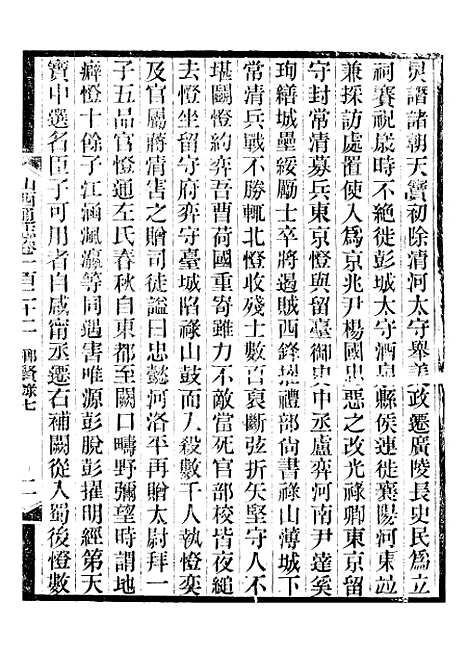 炅譖諸朝天寶初除清河太守舉美政遷廣陵長史民爲立
祠賽祝歲時不絶徙彭城太守酒泉縣侯連徙襄陽河東竝
兼採訪處置使入爲京兆尹楊國忠惡之改光祿卿東京留
守封常清募兵東京憕與留臺御史中丞盧奕河南尹達奚
珣繕城壘綏勵士卒將遏賊西鋒擢禮部尙書祿山薄城下
常清兵戰不勝輒北憕收殘士數百裒斷弦折矢堅守人不
堪鬬憕約奕吾曹荷國重寄雖力不敵當死官部校皆夜縋
去憕坐留守府奕守臺城陷祿山鼓而入殺數千人執憕奕
及官屬蔣清害之贈司徒諡曰忠懿河洛平再贈太尉拜一
子五品官憕通左氏春秋自東都至闕口疇野彌望時謂地
癖憕十餘子江涵渢瀛等同遇害唯源彭脫彭擢明經第天
寶中選名臣子可用者自咸甯丞遷右補闕從入蜀後憕數
山西通志卷一百二十二 鄉賢錄七 二